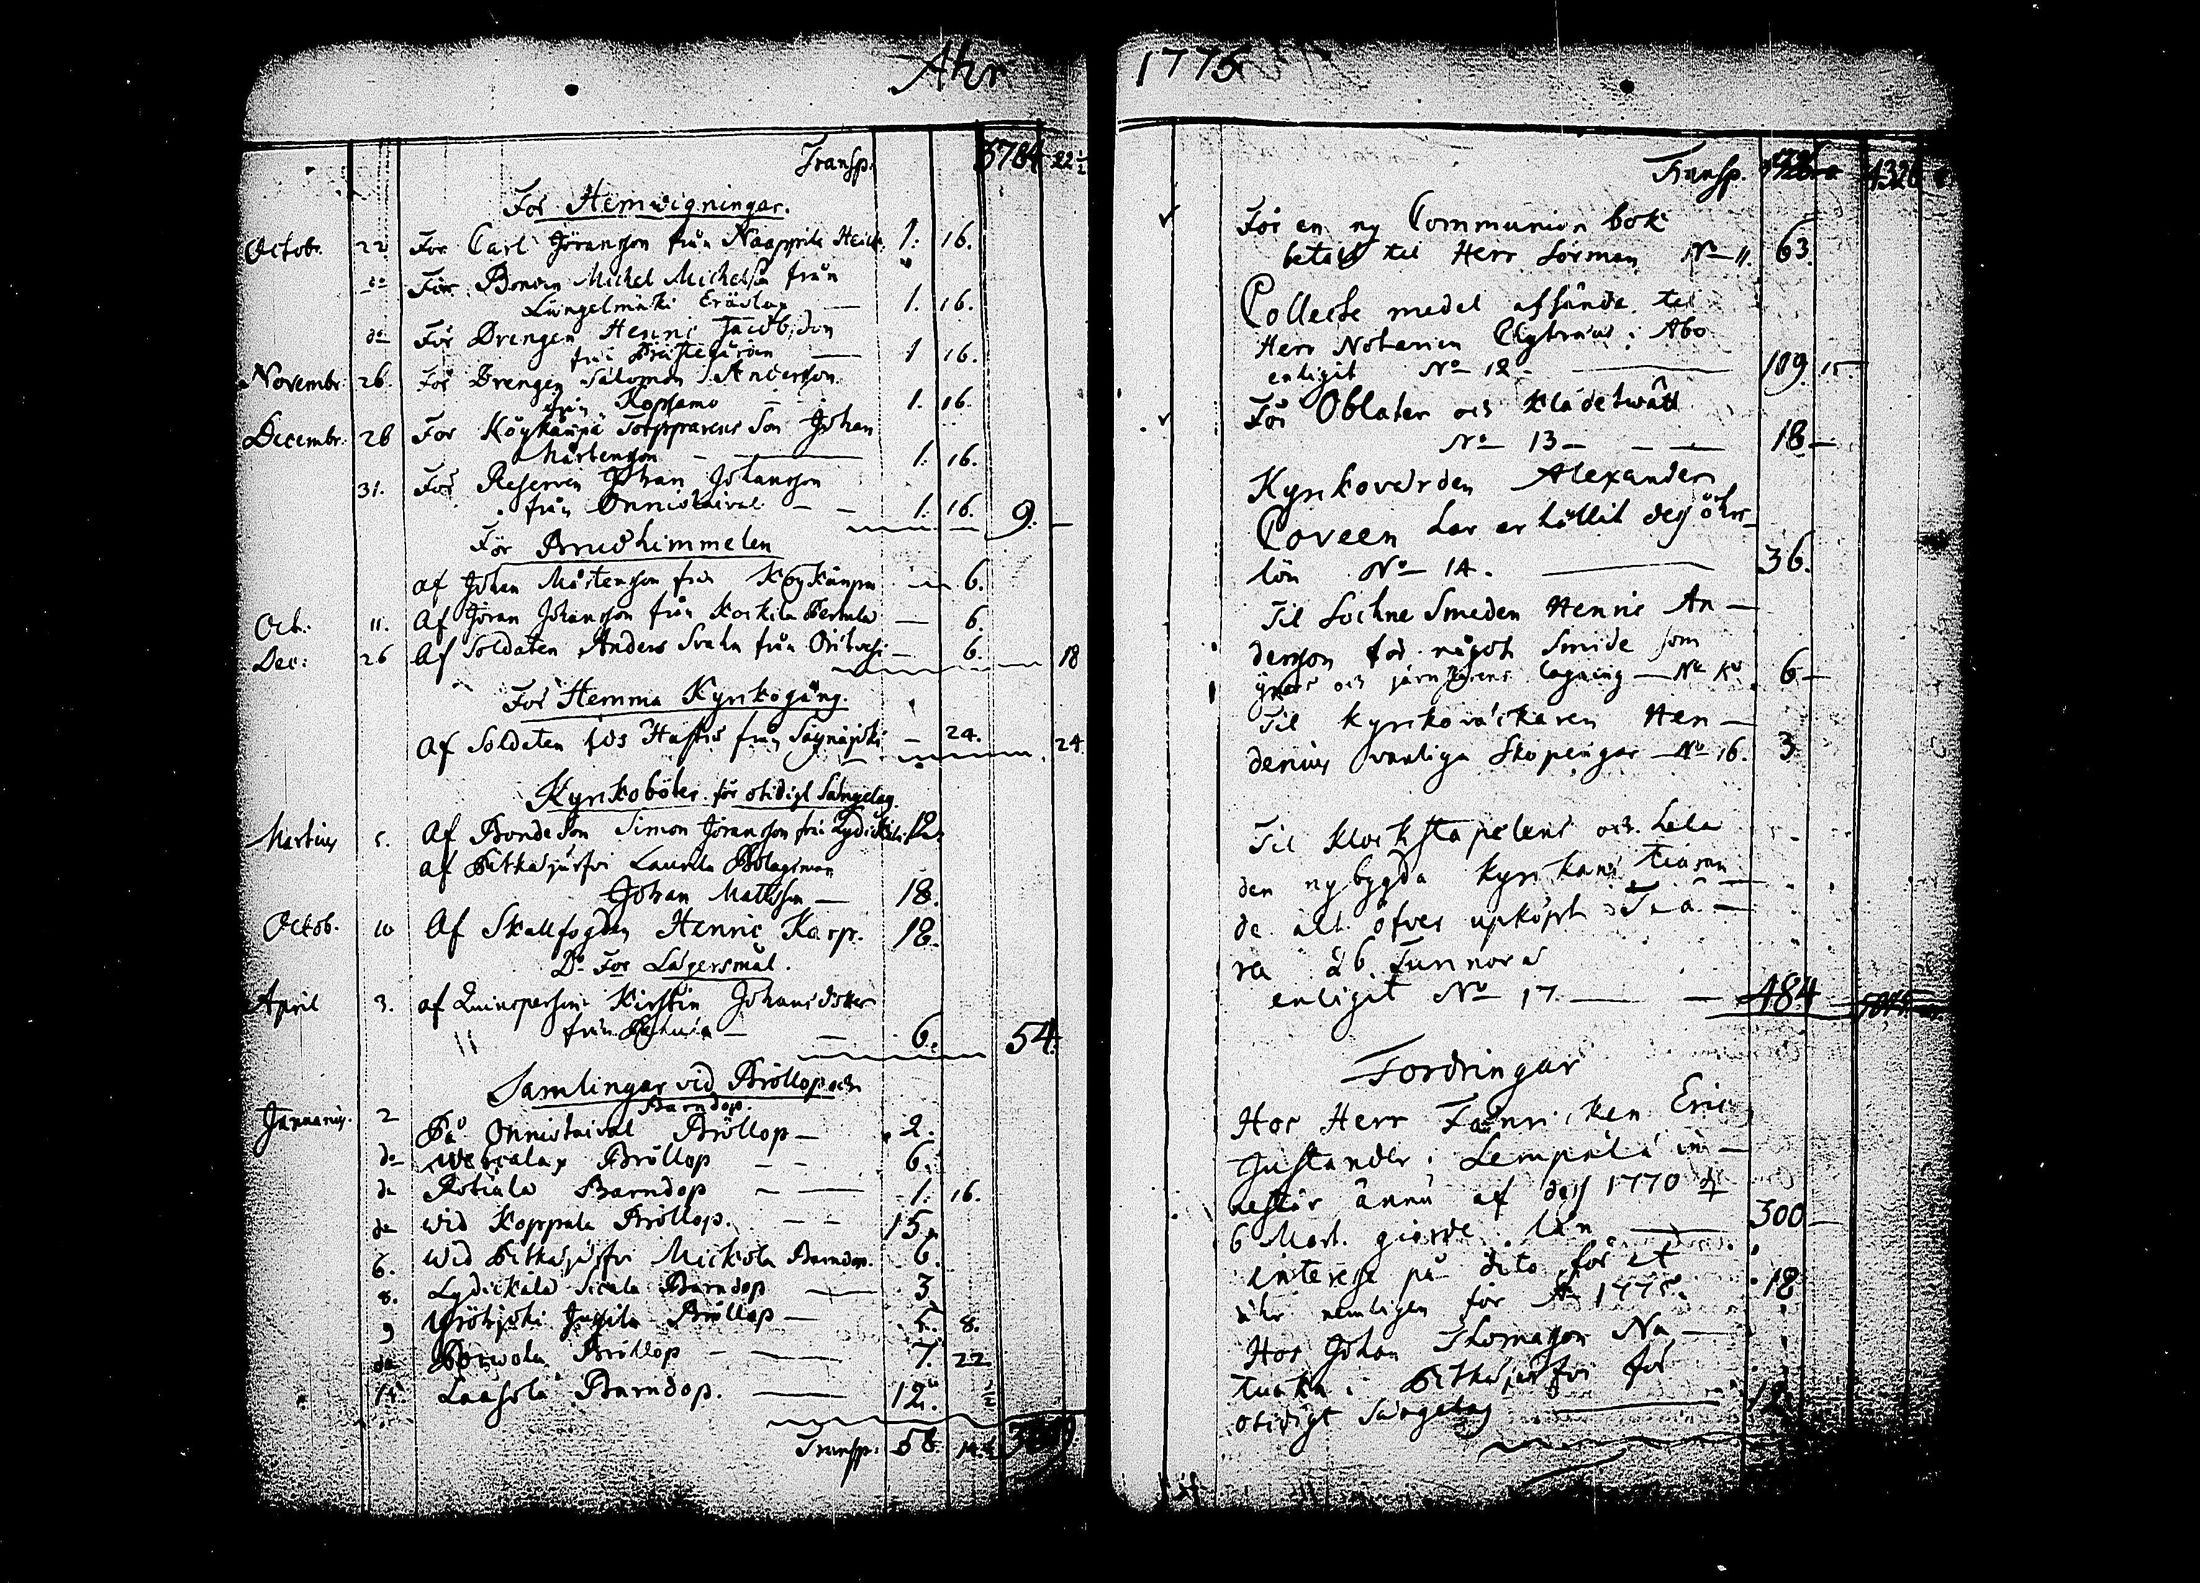 Ahr
Transp. 3784 22 1/2
För Hemvigningar.
Octobr. 22 För Carl Göransson från Naappila Heick. 1. 16.
do För Bonden Michel Michelss från
Längelmäki Eräslax — 1. 16.
do För Drengen Henric Jacobsson
från Prästegården — 1 16.
Novembr. 26 För Drengen Salomon Andersson
från Kopsamo 1. 16.
Decembr. 26 För Köykänpä Torpparens Son Johan
Mårtensson — 1. 16.
31. För Reserven Johan Johansson
från Onnistaival — 1. 16. 9. —
För Brudhimmelen
af Johan Mårtensson från Köykänpä — 6.
Oct. 11. Af Göran Johansson från Koskila Perttula — 6.
Dec: 26 Af Soldaten Anders Svahn från — 6. 18
För Hemma Kyrkogång.
Af Soldaten från Säynäjoki — 24. 24.
Kyrkoböter för otidigt Sängelag.
Martius 5. Af Bonde Son Simon Göransson från 12.
af Pitkäjärfvi Laurila Bolagsman
Johan Mattsson — 18.
Octob. 10 Af Skallfogden Henric Karp. 18.
Do För Lägersmål.
April 3. af Quinspersonen Kirstin Johansdotter
från — 6. 54.
Samlingar vid Bröllop och
Barndop.
Januarius. 2 På Onnistaival Bröllop — 2.
do Bröllop — 6.
do Rotiala Barndop — 1. 16.
do Wid Koppala Bröllop. — 15.
6. Wid Pitkäjärfvi Mickola Barndop. 6.
8. Lydickala Sicala Barndop — 3
9 Jussila Bröllop — 5. 8.
do Bröllop — 7. 22
Barndop. — 12. 1/2
Transp. 58
1775
Transp. 4326
För en ny Communion bok
betalt til Herr Sörman No 11. 63.
Collecte medel afsände til
Herr Notarien i Åbo
enligit No 12 — 109. 15
För Oblater och Klädetwätt
No 13 — 18 —
Kyrkovärden Alexander
Coveen har erhållit des åhrs
lön No 14. — 36.
Til Sochne Smeden Henric An-
dersson för något Smide som
och järn lagning — No 6 —
Til Kyrkoväcktaren Hen-
denius vanliga Skopengar — No 16. 3.
Til Klockstapelens och hela
den nybygda Kyrkans tiäran
de alt öfver upköpt Tiä-
ra 26. Tunnor
enligit No 17. — 484
Fordringar
Hos Herr Fänricken Eric
Gustander i Lempälä in-
nestår ännu af des 1770 d
6 Mart. giorde lån — 300 —
interesse på dito för et
åhr nemligen för A 1775. 18
Hos Johan Thomasson Na-
tucka i Pitkäjärfvi för
otidigt Sängelag — 12